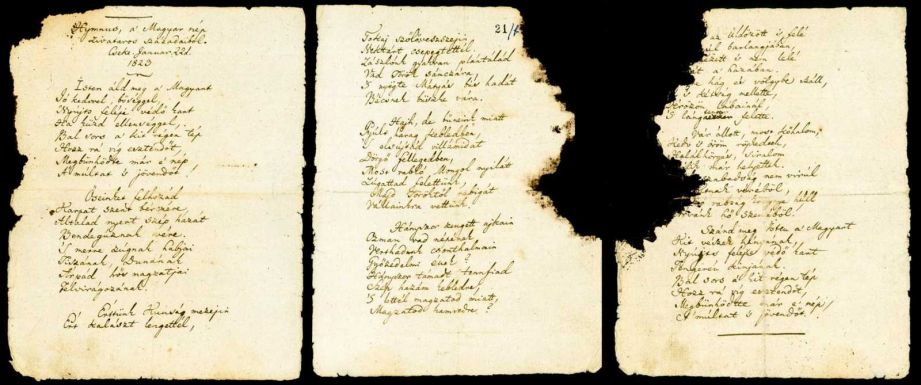 Hymnus, a' Magyar nép
zivataros századaiból.
Cseke Január 22d.
1823
Isten áld meg a' Magyart
Jó kedvvel, bőséggel,
Nyújts feléje védő kart
Ha küzd ellenséggel;
Bal sors a' kit régen tép
Hozz rá víg esztendőt,
Megbünhödte már e' nép
A' multat 's jövendőt!
Őseinket felhozád
Kárpát' szent bérczére,
Általad nyert szép hazát
Bendegúznak vére.
'S merre zúgnak habjai
Tiszának, Dunának
Árpád' hős magzatjai
Felvirágozának.
Értünk Kunság' mezején
Ért kalászt lengettél,
21/
Tokaj' szőlővesszejin
Nektárt csepegtettél.
Zászlónk gyakran plántálád
Vad Török' sánczára,
'S nyögte Mátyás' bús hadát
Bécsnek büszke vára.
Hajh, de bűneink miatt
Gyúlt harag kebledben,
'S elsújtád villámidat
Dörgő fellegedben,
Most rabló Mongol' nyilát
Zúgattad felettünk,
Majd Töröktől rabigát
Vállainkra vettünk.
Hányszor zengett ajkain
Ozman' vad népének
Vert hadunk' csonthalmain
Győzedelmi ének?
Hányszor támadt tenfiad
Szép hazám kebledre,
'S lettél magzatod miatt
Magzatod' hamvedre?
üldözött 's felé
barlangjában,
nézett 's nem lelé
a' hazában.
hág és völgybe száll,
'S kétség mellette,
Vérözön lábainál,
'S láng felette.
Vár állott, most kőhalom,
Kedv 's öröm röpkedtek,
Halálhörgés, siralom
már helyettek.
szabadság nem virúl
véréből,
rabság' könnye hull
hő szeméből.
Szánd meg Isten a' Magyart
Kit vészek hányának,
Nyújts feléje védő kart
Tengerén kínjának.
Bal sors a' kit régen tép
Hozz rá víg esztendőt,
Megbünhödte már e' nép
A' multat 's jövendőt.